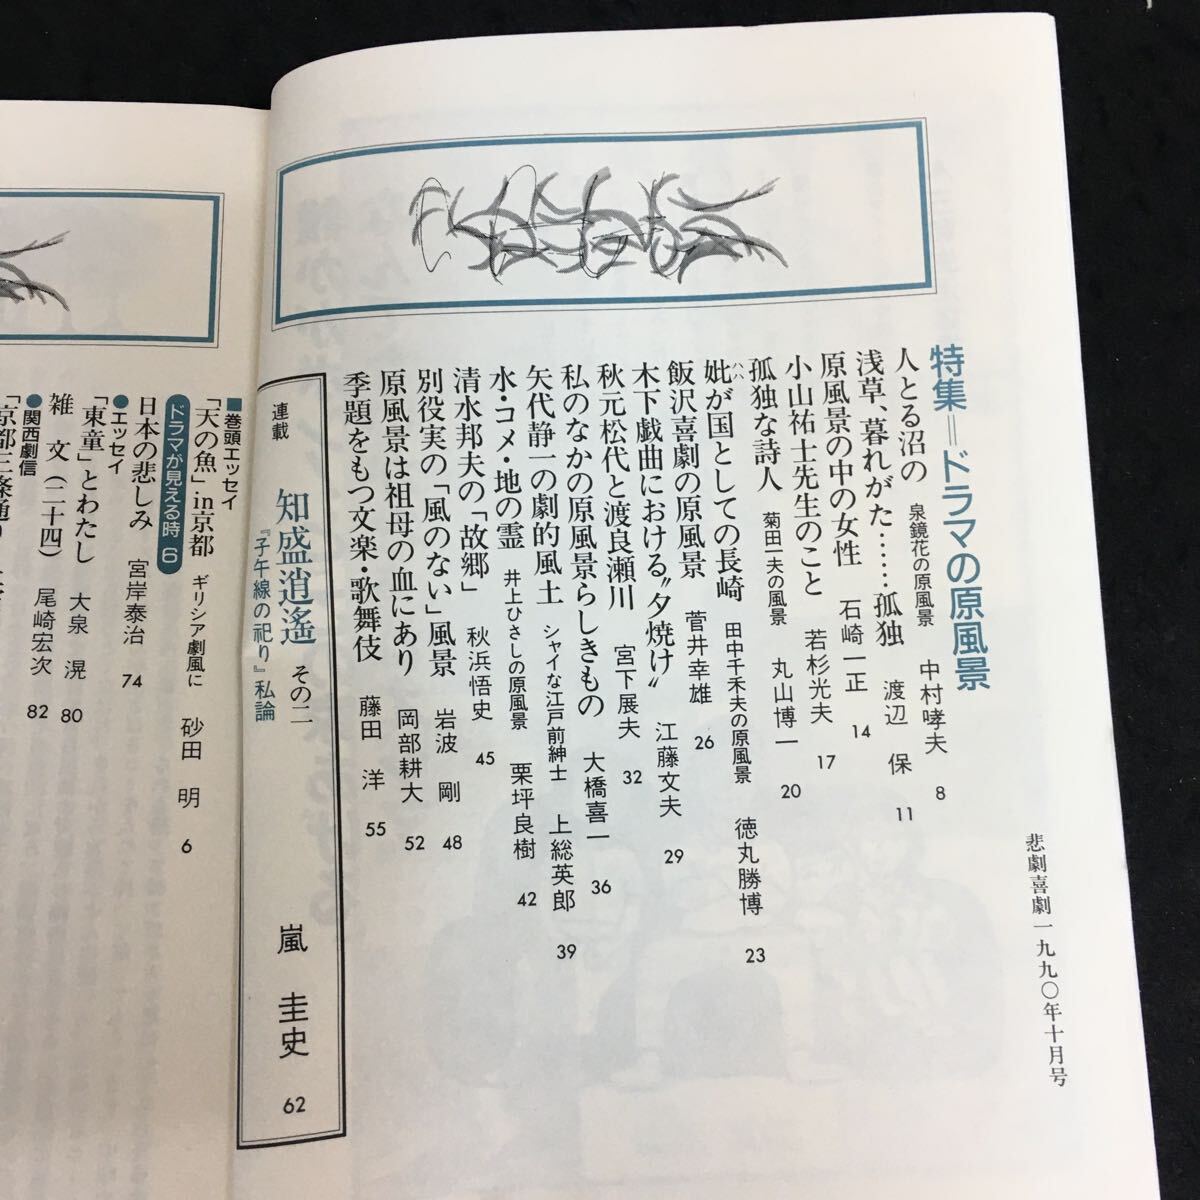 悲劇喜劇一九九〇年十月号
特集＝ドラマの原風景
人とる沼の 泉鏡花の原風景 中村哮夫 8
浅草、暮れがた……孤独 渡辺 保 11
原風景の中の女性 石崎一正 14
小山祐士先生のこと 若杉光夫 17
孤独な詩人 菊田一夫の風景 丸山博一 20
妣が国としての長崎 田中千禾夫の原風景 徳丸勝博 23
飯沢喜劇の原風景 菅井幸雄 26
木下戯曲における〝夕焼け〟 江藤文夫 29
秋元松代と渡良瀬川 宮下展夫 32
私のなかの原風景らしきもの 大橋喜一 36
矢代静一の劇的風土 シャイな江戸前紳士 上総英郎 39
水・コメ・地の霊 井上ひさしの原風景 栗坪良樹 42
清水邦夫の「故郷」 秋浜悟史 45
別役実の「風のない」風景 岩波 剛 48
原風景は祖母の血にあり 岡部耕大 52
季題をもつ文楽・歌舞伎 藤田 洋 55
連載 知盛逍遙 その二 嵐 圭史 62
『子午線の祀り』私論
■巻頭エッセイ
「天の魚」in京都 ギリシア劇風に 砂田 明 6
ドラマが見える時 6
日本の悲しみ 宮岸泰治 74
●エッセイ
「東童」とわたし 大泉 滉 80
雑 文（二十四） 尾崎宏次 82
●関西劇信